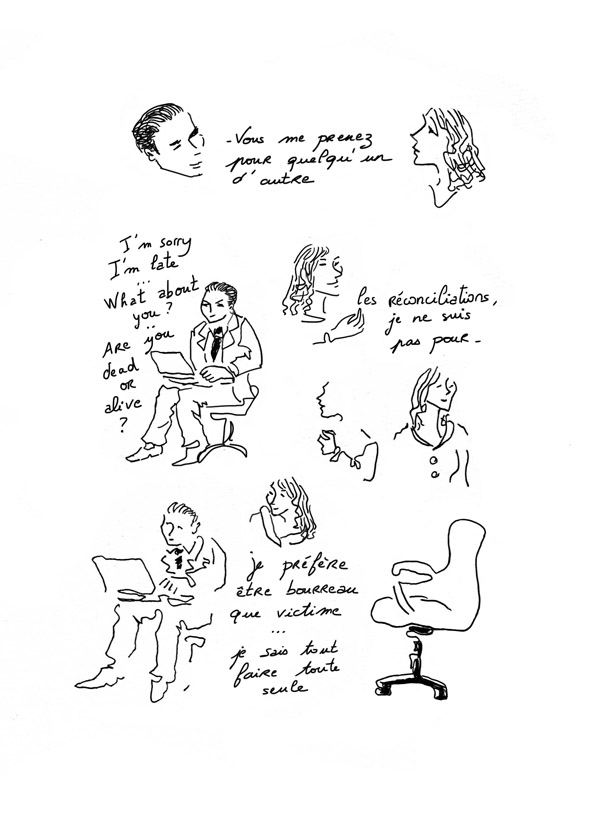 - Vous me prenez
pour quelqu'un
d'autre
I'm sorry
I'm late
...
What about
you?
...
Are you
dead
or
alive
?
les réconciliations,
je ne suis
pas pour -
je préfère
être bourreau
que victime
...
je sais tout
faire toute
seule